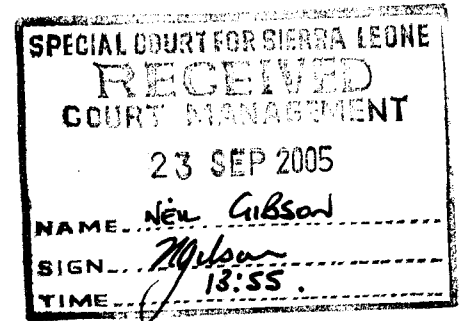 SPECIAL COURT FOR SIERRA LEONE
RECEIVED
COURT MANAGEMENT
23 SEP 2005
NAME NEIL GIBSON
SIGN NGibson
TIME 13:55.